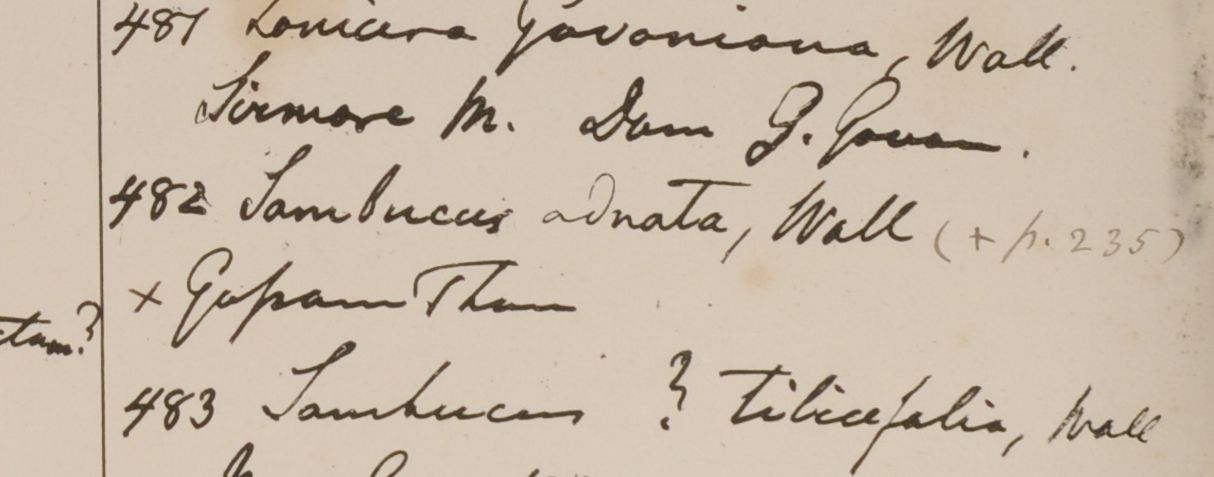 481 Lonicera Govaniana, Wall.
Sirmore M. Dom G. Govan.
482 Sambucus adnata, Wall (+ p. 235)
+ Gosam Than
483 Sambucus ? tiliaefolia, Wall